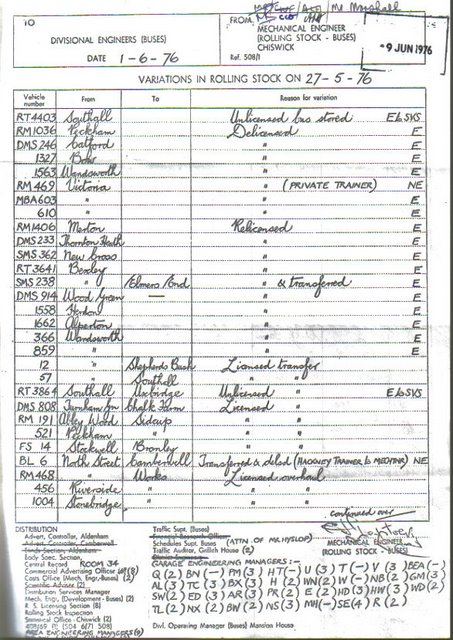 Mr Marshall
10
DIVISIONAL ENGINEERS (BUSES)
DATE 1-6-76
FROM
MECHANICAL ENGINEER
(ROLLING STOCK - BUSES)
CHISWICK
Ref. 508/1
-9 JUN 1976
VARIATIONS IN ROLLING STOCK ON 27-5-76
Vehicle number From To Reason for variation
RT4403 Southall Unlicensed bus stored E to SVS
RM1036 Peckham Delicensed E
DMS 246 Catford " E
1327 Bow " E
1563 Wandsworth " E
RM 469 Victoria " (PRIVATE TRAINER) NE
MBA603 " " E
610 " " E
RM1406 Merton Relicensed E
DMS233 Thornton Heath " E
SMS 362 New Cross " E
RT3641 Bexley " E
SMS 238 " Elmers End " & transferred E
DMS 914 Wood Green — " E
1558 Hendon " E
1662 Alperton " E
366 Wandsworth " E
859 " " E
12 " Shepherds Bush Licensed transfer
57 " Southall " "
RT 3864 Southall Uxbridge Unlicensed " E to SVS
DMS 808 Turnham Grn Chalk Farm Licensed "
RM 191 Abbey Wood Sidcup " "
521 Peckham " " "
FS 14 Stockwell Bromley " "
BL 6 North Street Camberwell Transferred & delsd (HACKNEY TRAINER to MECH'INR) NE
RM468 " Works Licensed overhaul
456 Riverside " " "
1004 Stonebridge " " "
continued over
MECHANICAL ENGINEER
(ROLLING STOCK - BUSES)
DISTRIBUTION
Advert. Controller, Aldenham
Body Spec. Section,
Central Record ROOM 34
Commercial Advertising Officer
Costs Office (Mech. Engr.-Buses) (2)
Scientific Adviser (2)
Distribution Services Manager
Mech. Engr. (Development - Buses) (2)
R. S. Licensing Section (8)
Rolling Stock Inspection
Statistical Office - Chiswick (2)
AREA ENGINEERING MANAGERS
Traffic Supt. (Buses)
Schedules Supt. (Buses) (ATTN. OF MR. HYSLOP)
Traffic Auditor, Griffith House (2)
GARAGE ENGINEERING MANAGERS :-
Q (2) BN (-) PM (3) HT (-) U (3) T (-) V (3) BEA (-)
AL (3) TC (3) BX (3) H (2) WN (2) W (-) NB (2) GM (3)
SW (2) ED (3) AR (3) PR (2) E (2) HD (3) HW (3) WD (2)
TL (2) NX (2) BW (2) NS (3) MH (-) SE (4) R (2)
Divl. Operating Manager (Buses) Mansion House